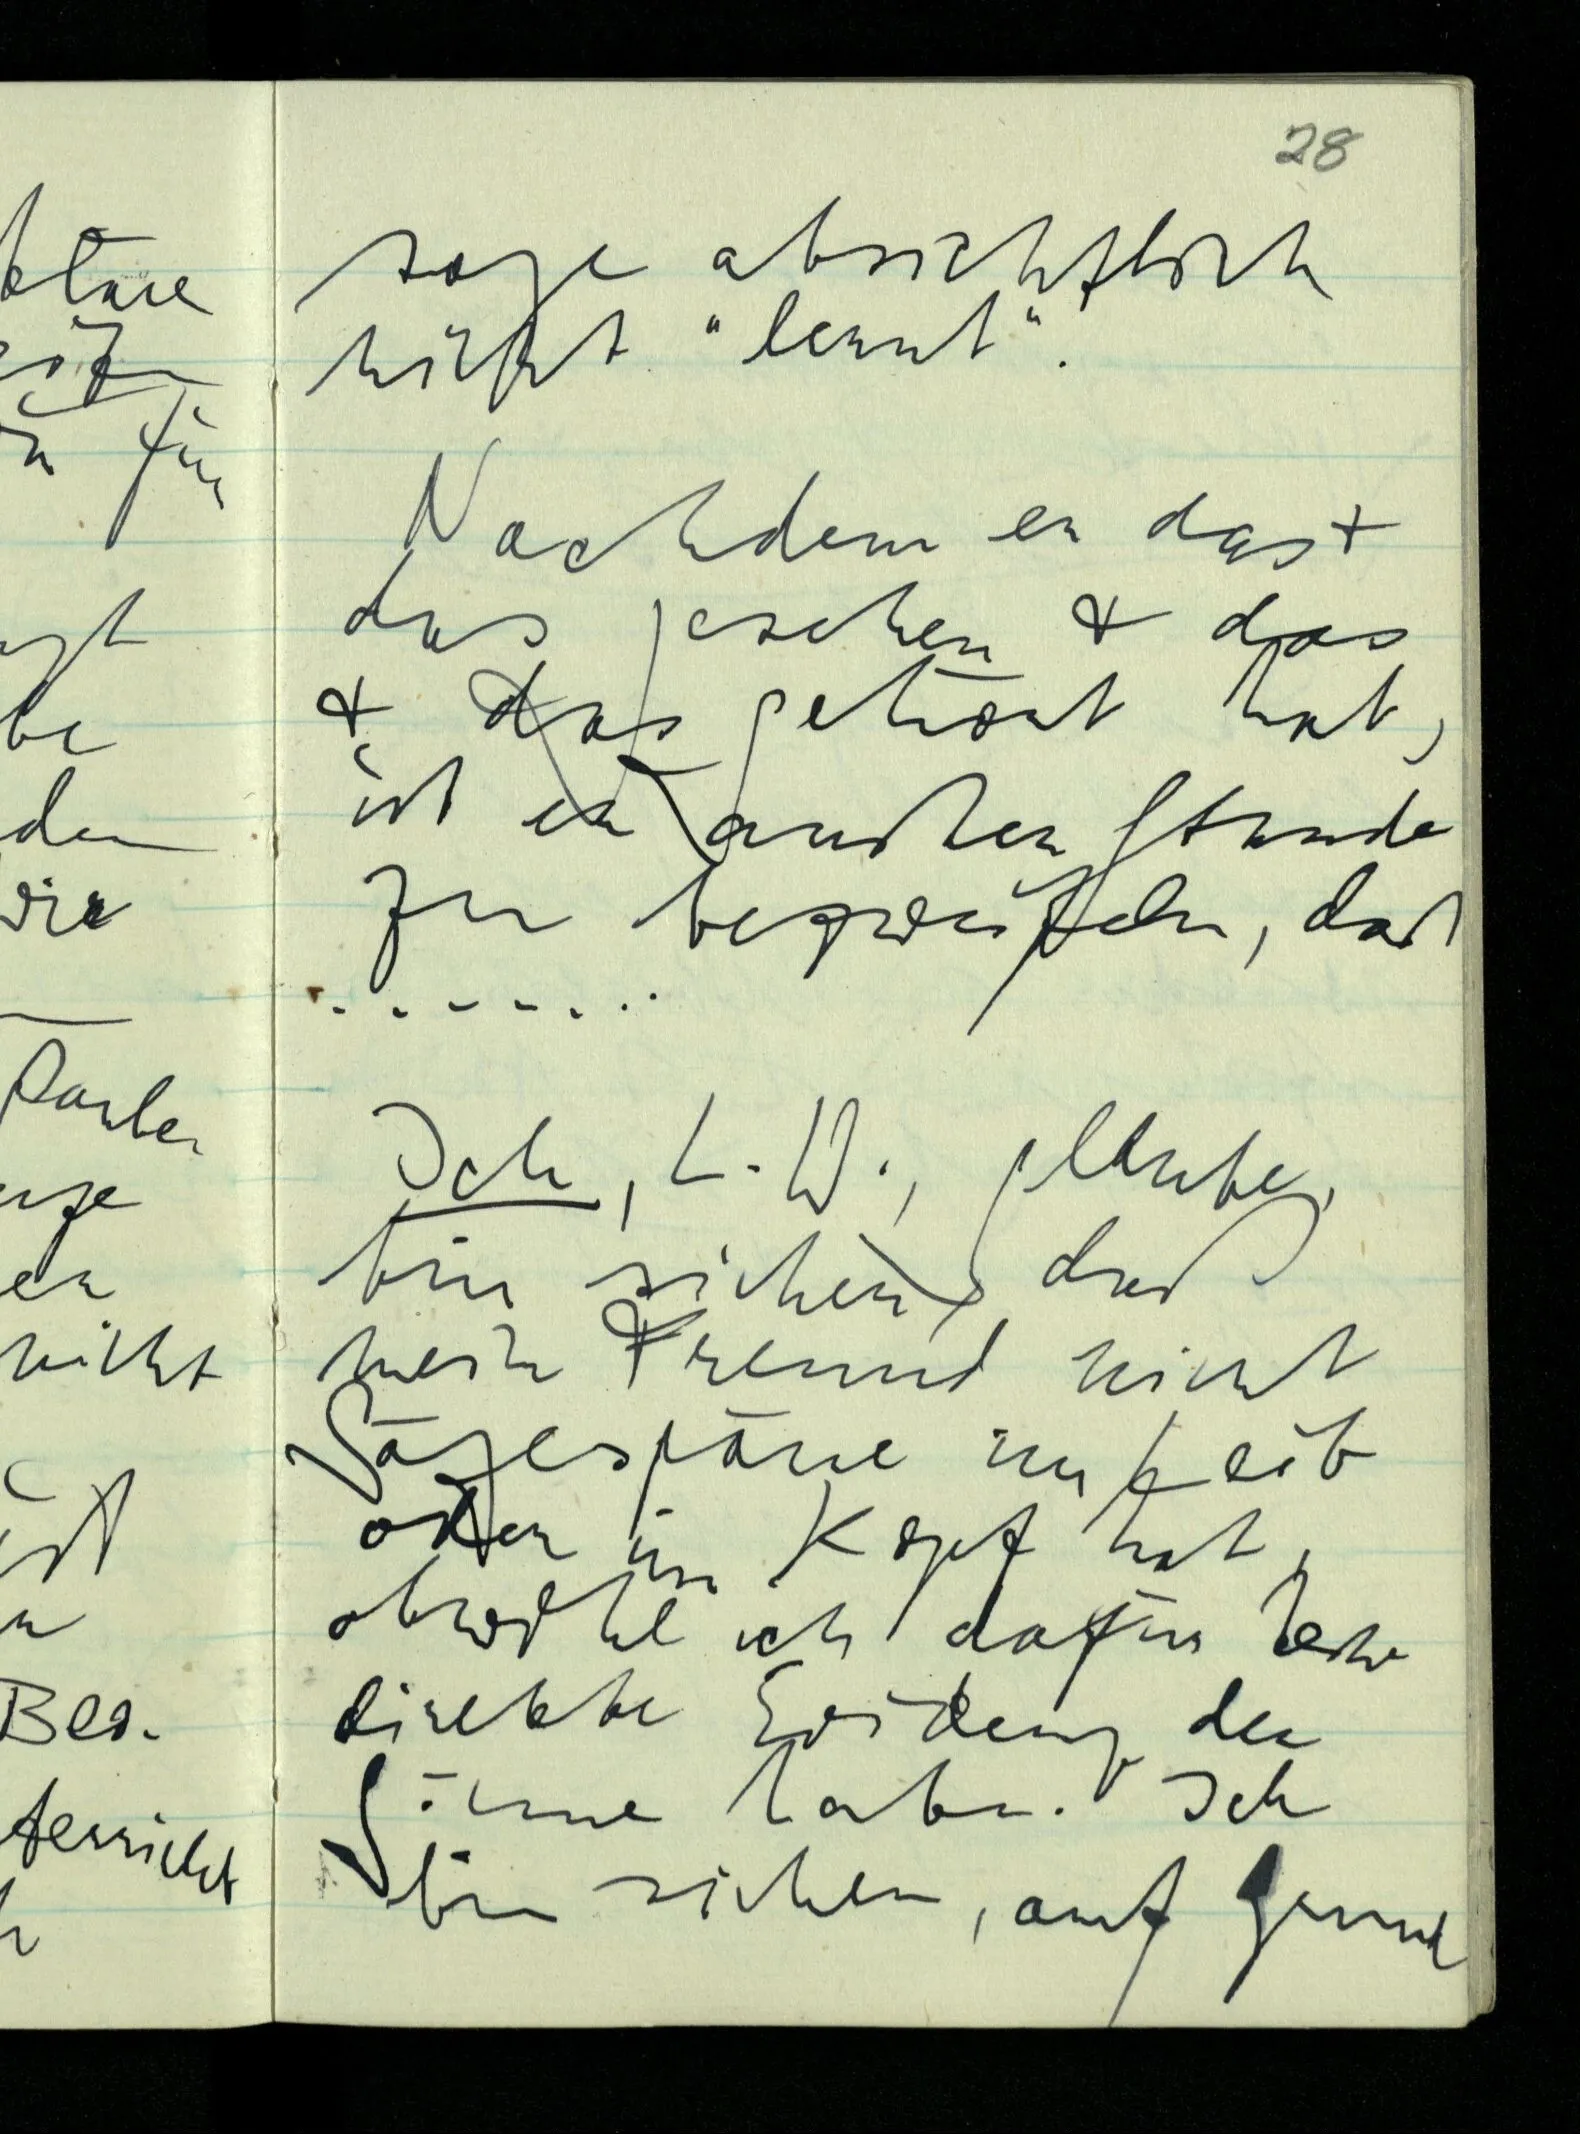 28
sage absichtlich
nicht "lernt".
Nachdem er das &
das gesehen & das
& das gehört hat,
ist er außer Stande
zu bezweifeln, daß
. . - - - . . .
Ich, L.W., glaube,
bin sicher, daß
mein Freund nicht
Sägespäne im Leib
oder im Kopf hat,
obwohl ich dafür keine
direkte Evidenz der
Sinne habe. Ich
bin sicher, auf Grund
für
den
wir
nicht
ist
Bes.